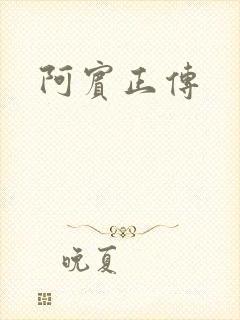 阿賓正傳
晚夏